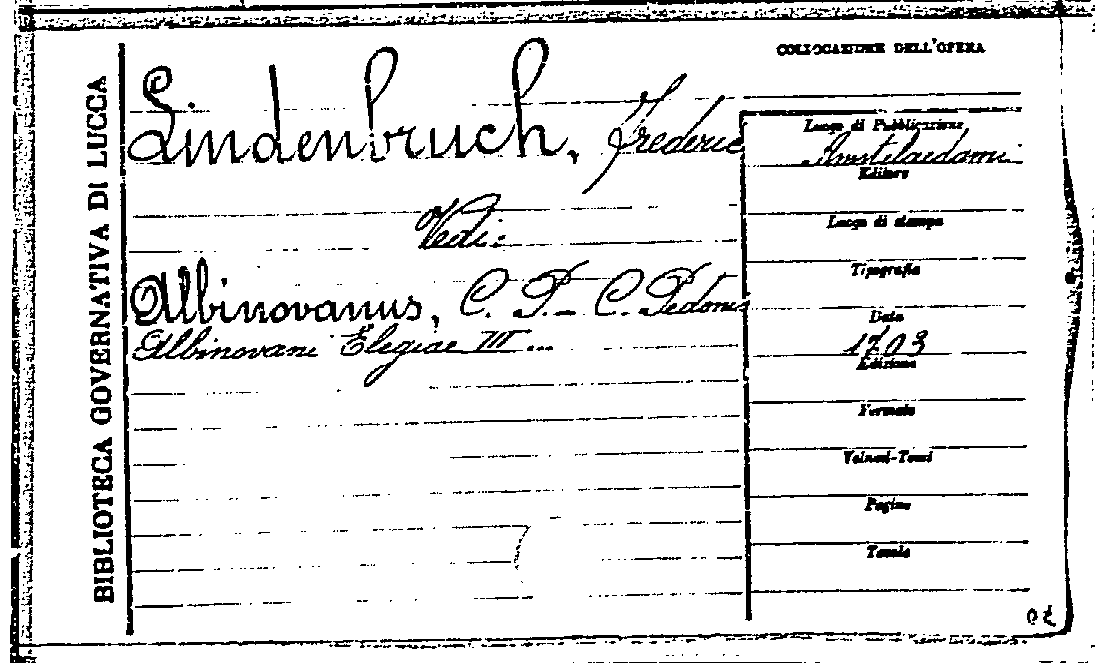 BIBLIOTECA GOVERNATIVA DI LUCCA
COLLOCAZIONE DELL'OPERA
Lindenbruch, Frederic
Vedi:
Albinovanus, C. P. - C. Pedonis
Albinovani Elegiae III...
Luogo di Pubblicazione
Amstelaedami
Editore
Luogo di stampa
Tipografia
Data
1703
Edizione
Formato
Volumi-Tomi
Pagine
Tavole